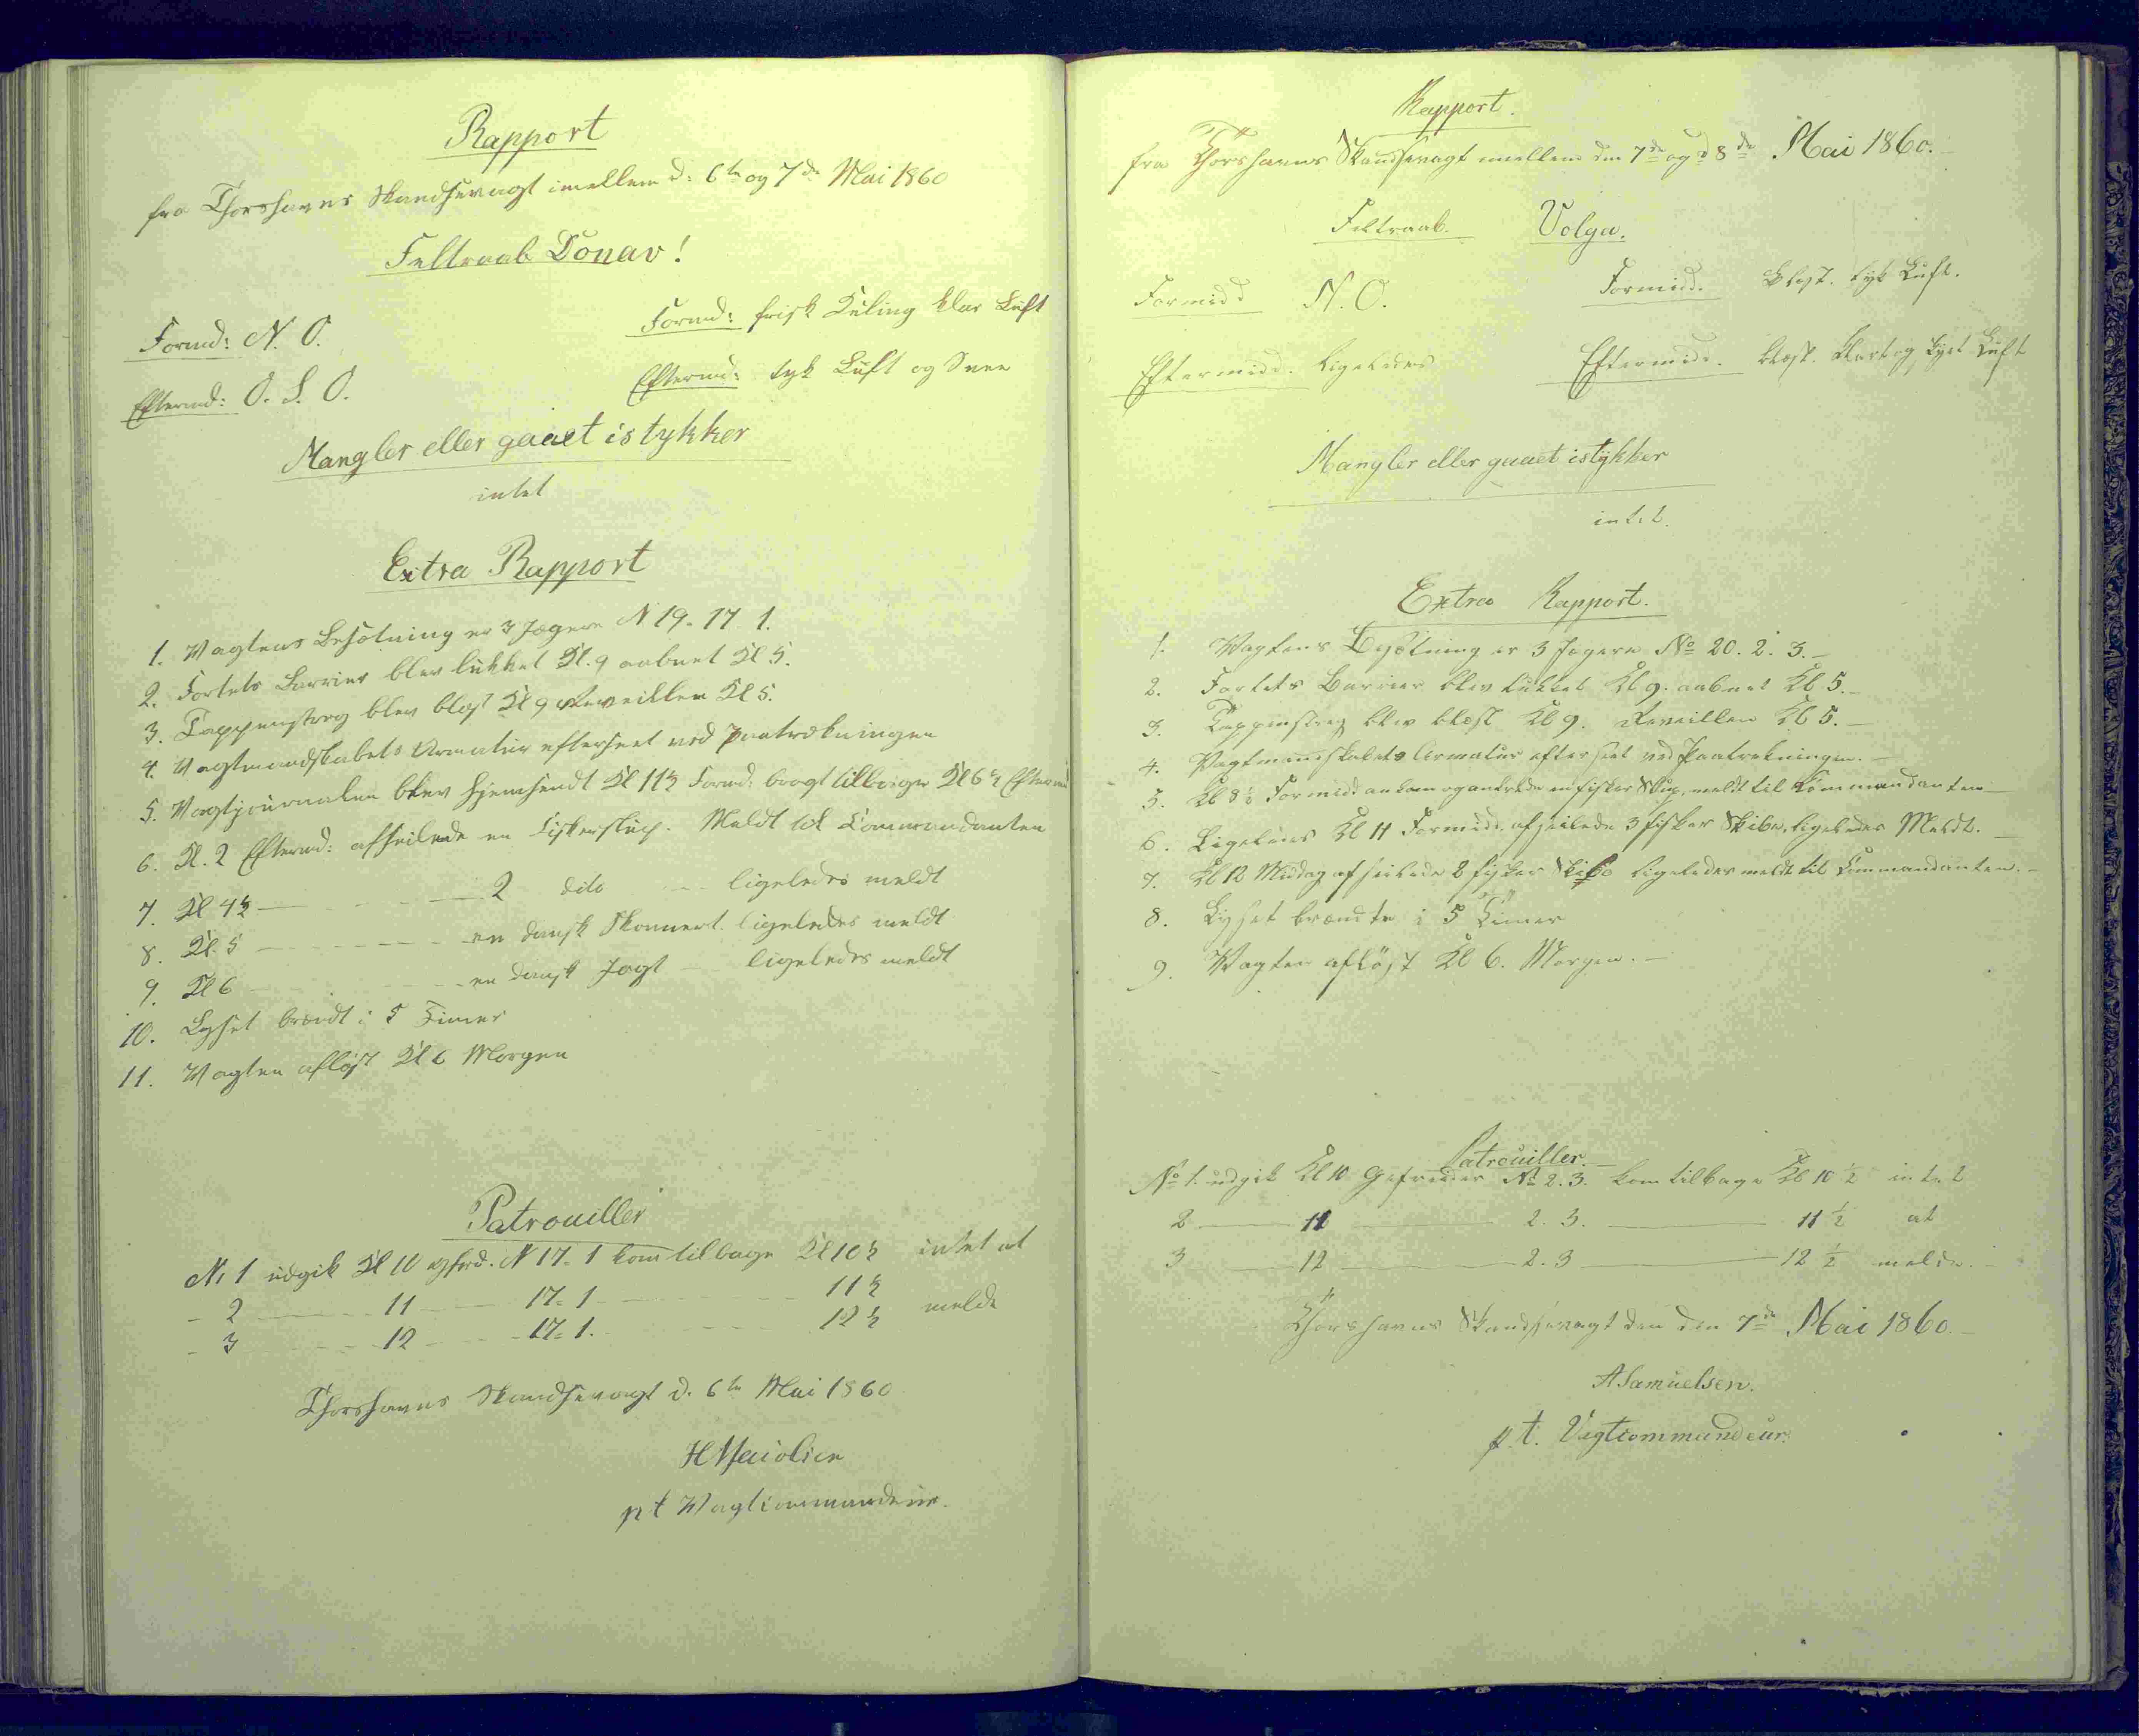 Rapport
fra Thorshavns Skandsevagt imellem d: 6te og 7de Mai 1860
Feltraab Donau!
Formd: N. O.
Formd: frisk Kuling klar Luft
Eftermd: O. S. O.
Eftermd: tyk Luft og Snee
Mangler eller gaaet istykker
intet
Extra Rapport
1. Vagtens Besætning er 3 Jægere N 19. 17. 1.
2. Fortets Barrier blev lukket Kl. 9 aabnet Kl 5.
3. Tappenstreg blev blæst Kl 9 Reveillen Kl 5.
4. Vagtmandskabets Armatur efterseet ved Paatrækningen
5. Vagtjournalen blev hjemsendt Kl 11½ Formd: bragt tilbage Kl 6½ Eftermd
6. Kl. 2 Eftermd: afseilede en Fiskerslup. Meldt til Commandanten
7. Kl 4½ — — 2 dito — ligeledes meldt
8. Kl. 5 — — en dansk Skonnert ligeledes meldt
9. Kl 6 — — en dansk Jagt — ligeledes meldt
10. Lyset brændt i 5 Timer
11. Vagten afløst Kl 6 Morgen
Patrouiller
N. 1 udgik Kl 10 N 17. 1 kom tilbage Kl 10½ intet at
- 2 — 11 — 17. 1 — 11½
- 3 — 12 — 17. 1. — 12½ melde
Thorshavns Skandsevagt d. 6te Mai 1860
H
pt Vagtcommandeur.
Rapport.
fra Thorshavns Skandsevagt imellem den 7de og d 8de Mai 1860.
Feltraab. Volga.
Formidd N. O.
Formidd. Blæst. tyk Luft.
Eftermidd. ligeledes
Eftermidd. blæst. klart og tyk Luft
Mangler eller gaaet istykker
intet.
Extra Rapport.
1. Vagtens Besætning er 3 Jægere No 20. 2. 3.
2. Fortets Barrier blev lukket Kl 9. aabnet Kl 5.
3. Tappenstreg blev blæst Kl 9. Reveillen Kl 5.
4. Vagtmandskabets Armatur efterseet ved Paatrækningen.
5. Kl 8½ Formidd ankom og ankrede en fisker Slup. meldt til Kommandanten
6. Ligeledes Kl 11 Formidd. afseilede 3 fisker Skibe, ligeledes Meldt.
7. Kl 12 Middag afseilede 2 fisker Skibe ligeledes meldt til Commandanten.
8. Lyset brændte i 5 Timer
9. Vagten afløst Kl 6. Morgen.
Patrouiller.
No 1. udgik Kl 10 Gefreider No 2. 3. kom tilbage Kl 10½ intet
2 — 11 — 2. 3. — 11½ at
3 — 12 — 2. 3 — 12½ melde.
Thorshavns Skandsevagt den den 7de Mai 1860.
ASamuelsen.
p. t. Vagtcommandeur.